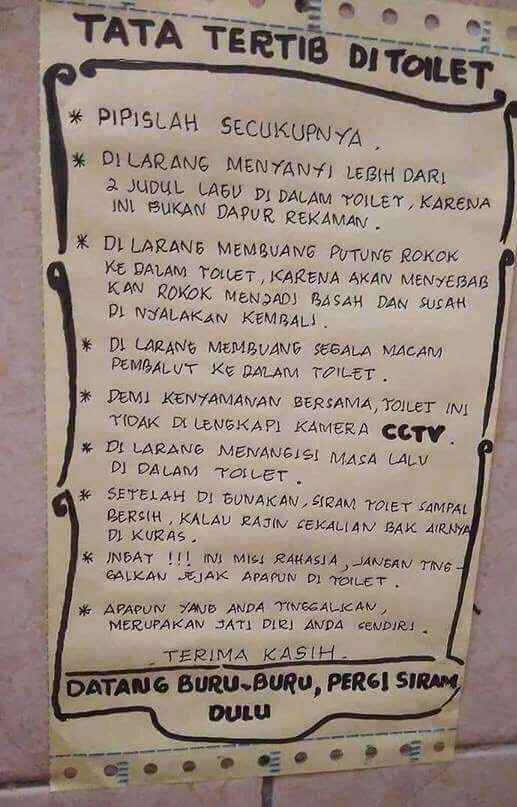 TATA TERTIB DI TOILET
* PIPISLAH SECUKUPNYA.
* DI LARANG MENYANYI LEBIH DARI
2 JUDUL LAGU DI DALAM TOILET, KARENA
INI BUKAN DAPUR REKAMAN.
* DI LARANG MEMBUANG PUTUNG ROKOK
KE DALAM TOILET, KARENA AKAN MENYEBAB
KAN ROKOK MENJADI BASAH DAN SUSAH
DI NYALAKAN KEMBALI.
* DI LARANG MEMBUANG SEGALA MACAM
PEMBALUT KE DALAM TOILET.
* DEMI KENYAMANAN BERSAMA, TOILET INI
TIDAK DI LENGKAPI KAMERA CCTV.
* DI LARANG MENANGISI MASA LALU
DI DALAM TOILET.
* SETELAH DI GUNAKAN, SIRAM TOLET SAMPAI
BERSIH, KALAU RAJIN SEKALIAN BAK AIRNYA
DI KURAS.
* INGAT !!! INI MISI RAHASIA, JANGAN TING-
GALKAN JEJAK APAPUN DI TOILET.
* APAPUN YANG ANDA TINGGALKAN,
MERUPAKAN JATI DIRI ANDA SENDIRI.
- TERIMA KASIH -
DATANG BURU-BURU, PERGI SIRAM
DULU